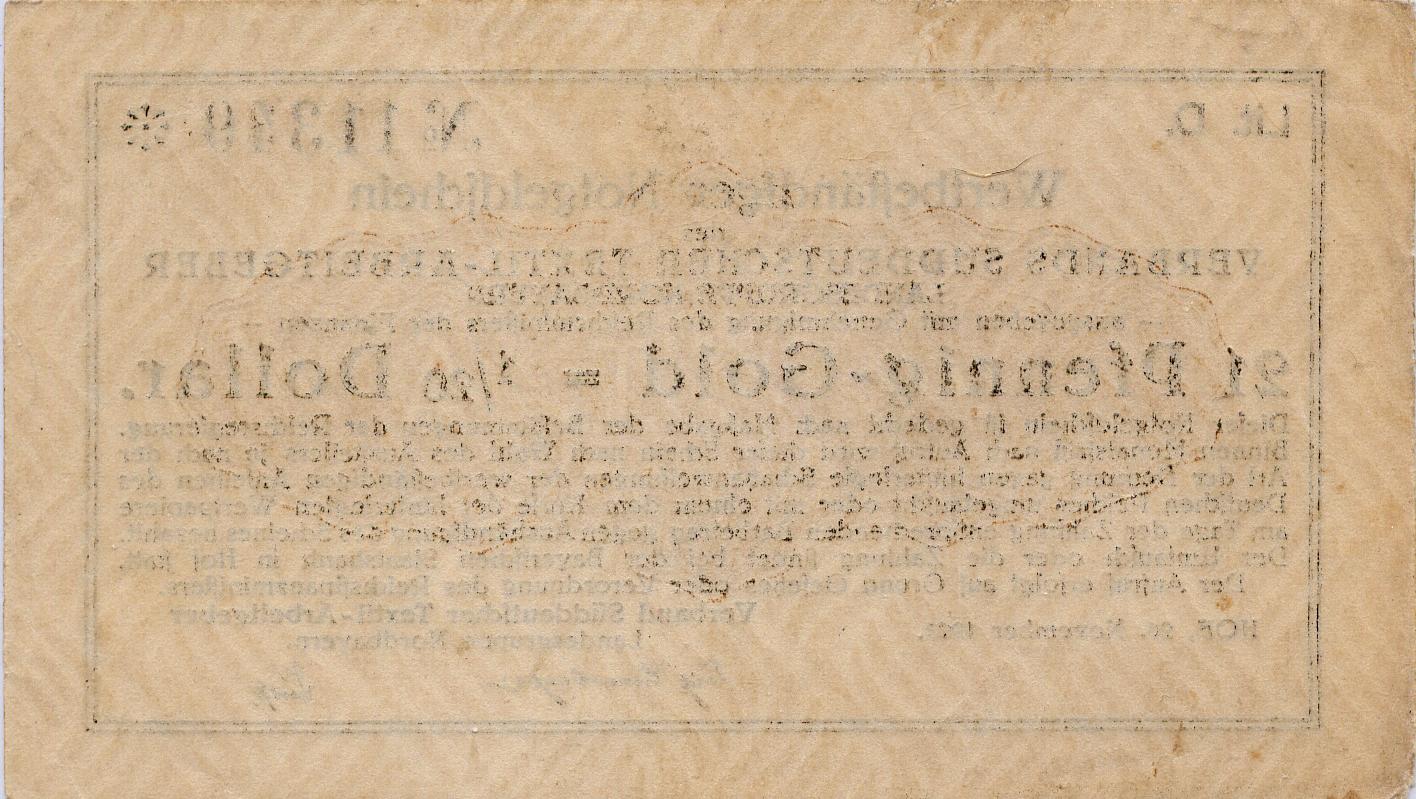 Lit. D.
№ 11339 *
Wertbeständiger Notgeldschein
des
VERBANDS SÜDDEUTSCHER TEXTIL-ARBEITGEBER
LANDESGRUPPE NORDBAYERN
— ausgegeben mit Genehmigung des Reichsministers der Finanzen —
21 Pfennig-Gold = 1/20 Dollar.
Dieser Notgeldschein ist gedeckt nach Maßgabe der Bestimmungen der Reichsregierung.
Binnen Monatsfrist nach Aufruf wird dieser Schein nach Wahl des Ausstellers je nach der
Art der Deckung gegen hinterlegte Schatzanweisungen der wertbeständigen Anleihen des
Deutschen Reiches umgetauscht oder mit einem dem Kurse der hinterlegten Wertpapiere
am Tage der Zahlung entsprechenden Betrag gegen Aushändigung des Scheines bezahlt.
Der Umtausch oder die Zahlung findet bei der Bayerischen Staatsbank in Hof statt.
Der Aufruf erfolgt auf Grund Gesetzes oder Verordnung des Reichsfinanzministers.
HOF, 20. November 1923.
Verband Süddeutscher Textil-Arbeitgeber
Landesgruppe Nordbayern.